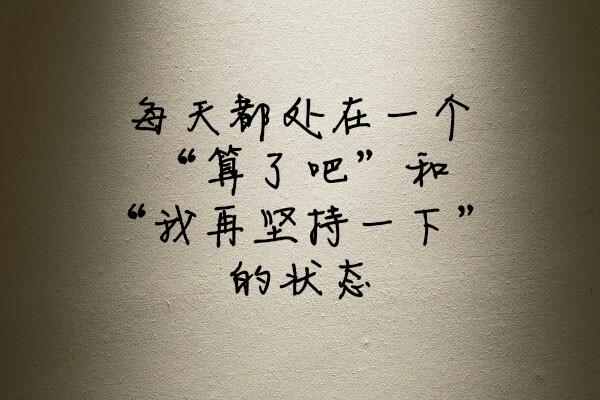 每天都处在一个
“算了吧”和
“我再坚持一下”
的状态